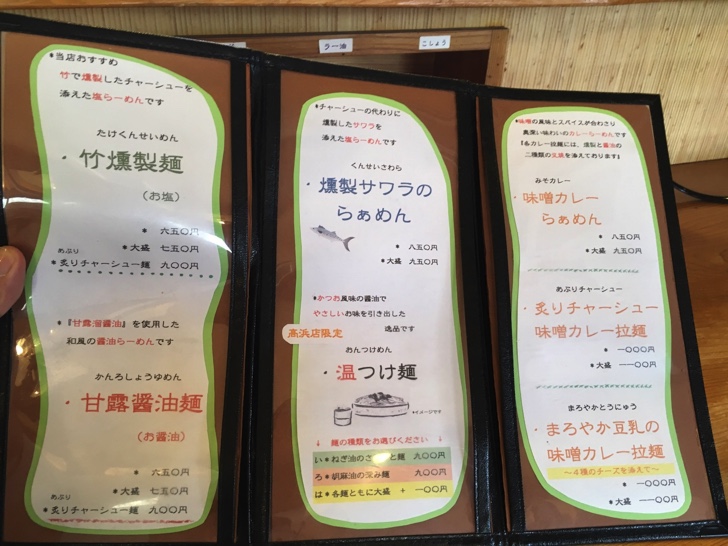 ラー油
こしょう
*当店おすすめ
竹で燻製したチャーシューを
添えた塩らーめんです
たけくんせいめん
・竹燻製麺
(お塩)
* 六五〇円
*大盛 七五〇円
あぶり
*炙りチャーシュー麺 九〇〇円
*『甘露溜醤油』を使用した
和風の醤油らーめんです
かんろしょうゆめん
・甘露醤油麺
(お醤油)
* 六五〇円
*大盛 七五〇円
あぶり
*炙りチャーシュー麺 九〇〇円
*チャーシューの代わりに
燻製したサワラを
添えた塩らーめんです
くんせいさわら
・燻製サワラの
らぁめん
* 八五〇円
*大盛 九五〇円
*かつお風味の醤油で
やさしいお味を引き出した
逸品です
高浜店限定
おんつけめん
・温つけ麺
*イメージです
↓ 麺の種類をお選びください ↓
い*ねぎ油のさっぱり麺 九〇〇円
ろ*胡麻油の深み麺 九〇〇円
は*各麺ともに大盛 + 一〇〇円
*味噌の風味とスパイスが合わさり
奥深い味わいのカレーらーめんです
『各カレー拉麺には、燻製と醤油の
二種類の玉子を添えております』
みそカレー
・味噌カレー
らぁめん
* 八五〇円
*大盛 九五〇円
あぶりチャーシュー
・炙りチャーシュー
味噌カレー拉麺
* 一〇〇〇円
*大盛 一一〇〇円
まろやかとうにゅう
・まろやか豆乳の
味噌カレー拉麺
～4種のチーズを添えて～
* 一〇〇〇円
*大盛 一一〇〇円